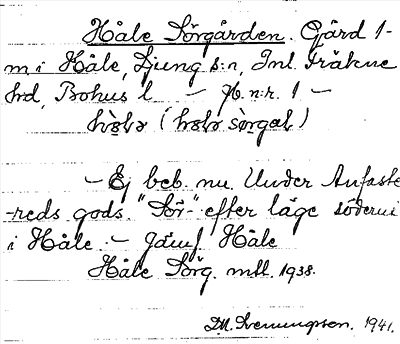 Håle Sörgården. Gård 1-
m i Håle, Ljung s:n, Inl. Fräkne
hrd, Bohus l – jb. n:r. 1 –
hɔ̀lə (hɔlə sɔ̀rgaḷ)
– Ej beb. nu. Under Anfaste
-reds gods. "Sör-" efter läge söderut
i Håle. – Jämf. Håle
Håle Sörg. mtl. 1938.
D.M. Svenungsson. 1941.